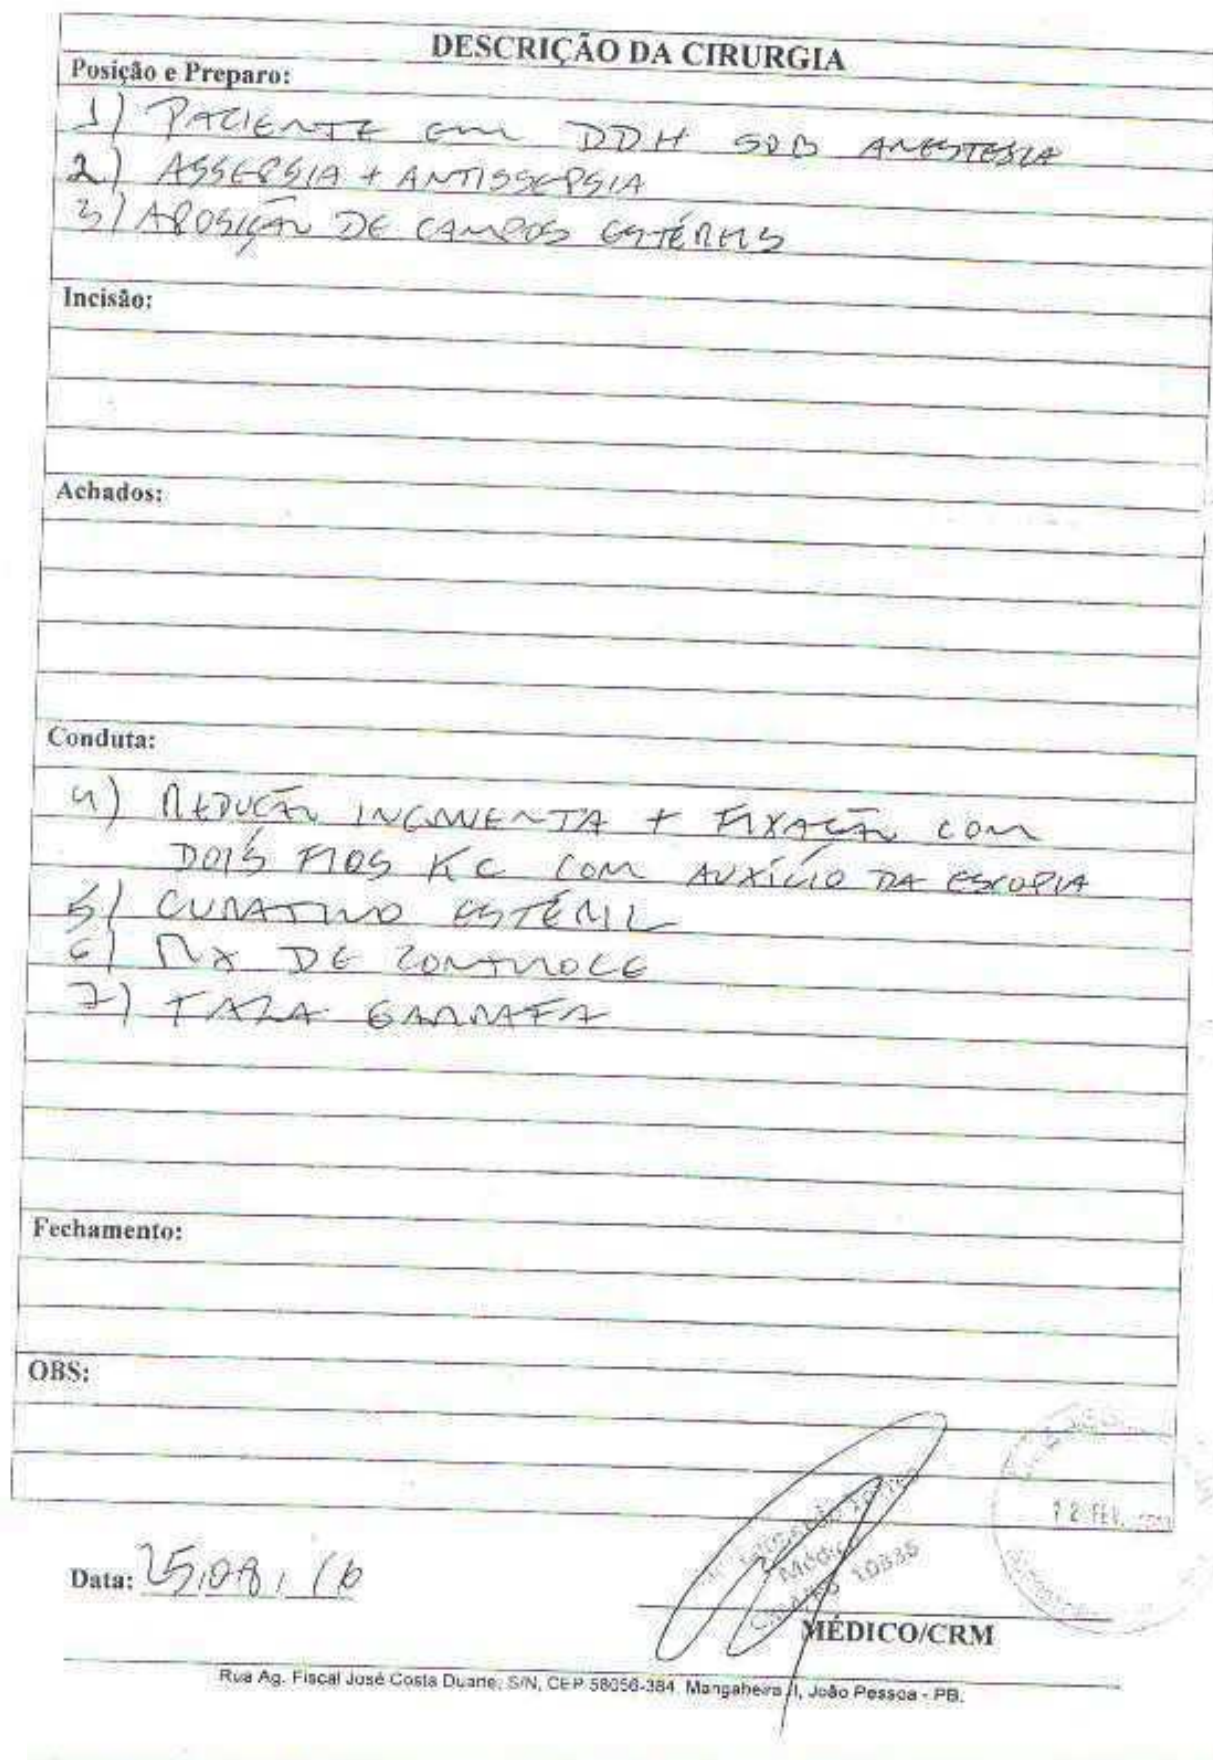 DESCRIÇÃO DA CIRURGIA
Posição e Preparo:
1) PACIENTE em DDH SOB ANESTESIA
2) ASSEPSIA + ANTISSEPSIA
3) APOSIÇÃO DE CAMPOS ESTÉREIS
Incisão:
Achados:
Conduta:
4) REDUÇÃO INCRUENTA + FIXAÇÃO COM
DOIS FIOS KC COM AUXÍLIO DA ESCOPIA
5) CURATIVO ESTÉRIL
6) RX DE CONTROLE
7) TALA GARRAFA
Fechamento:
OBS:
12 FEV.
Data: 25/08/16
Médico
10335
MÉDICO/CRM
Rua Ag. Fiscal José Costa Duarte, S/N, CEP 58056-384 Mangabeira II, João Pessoa - PB.